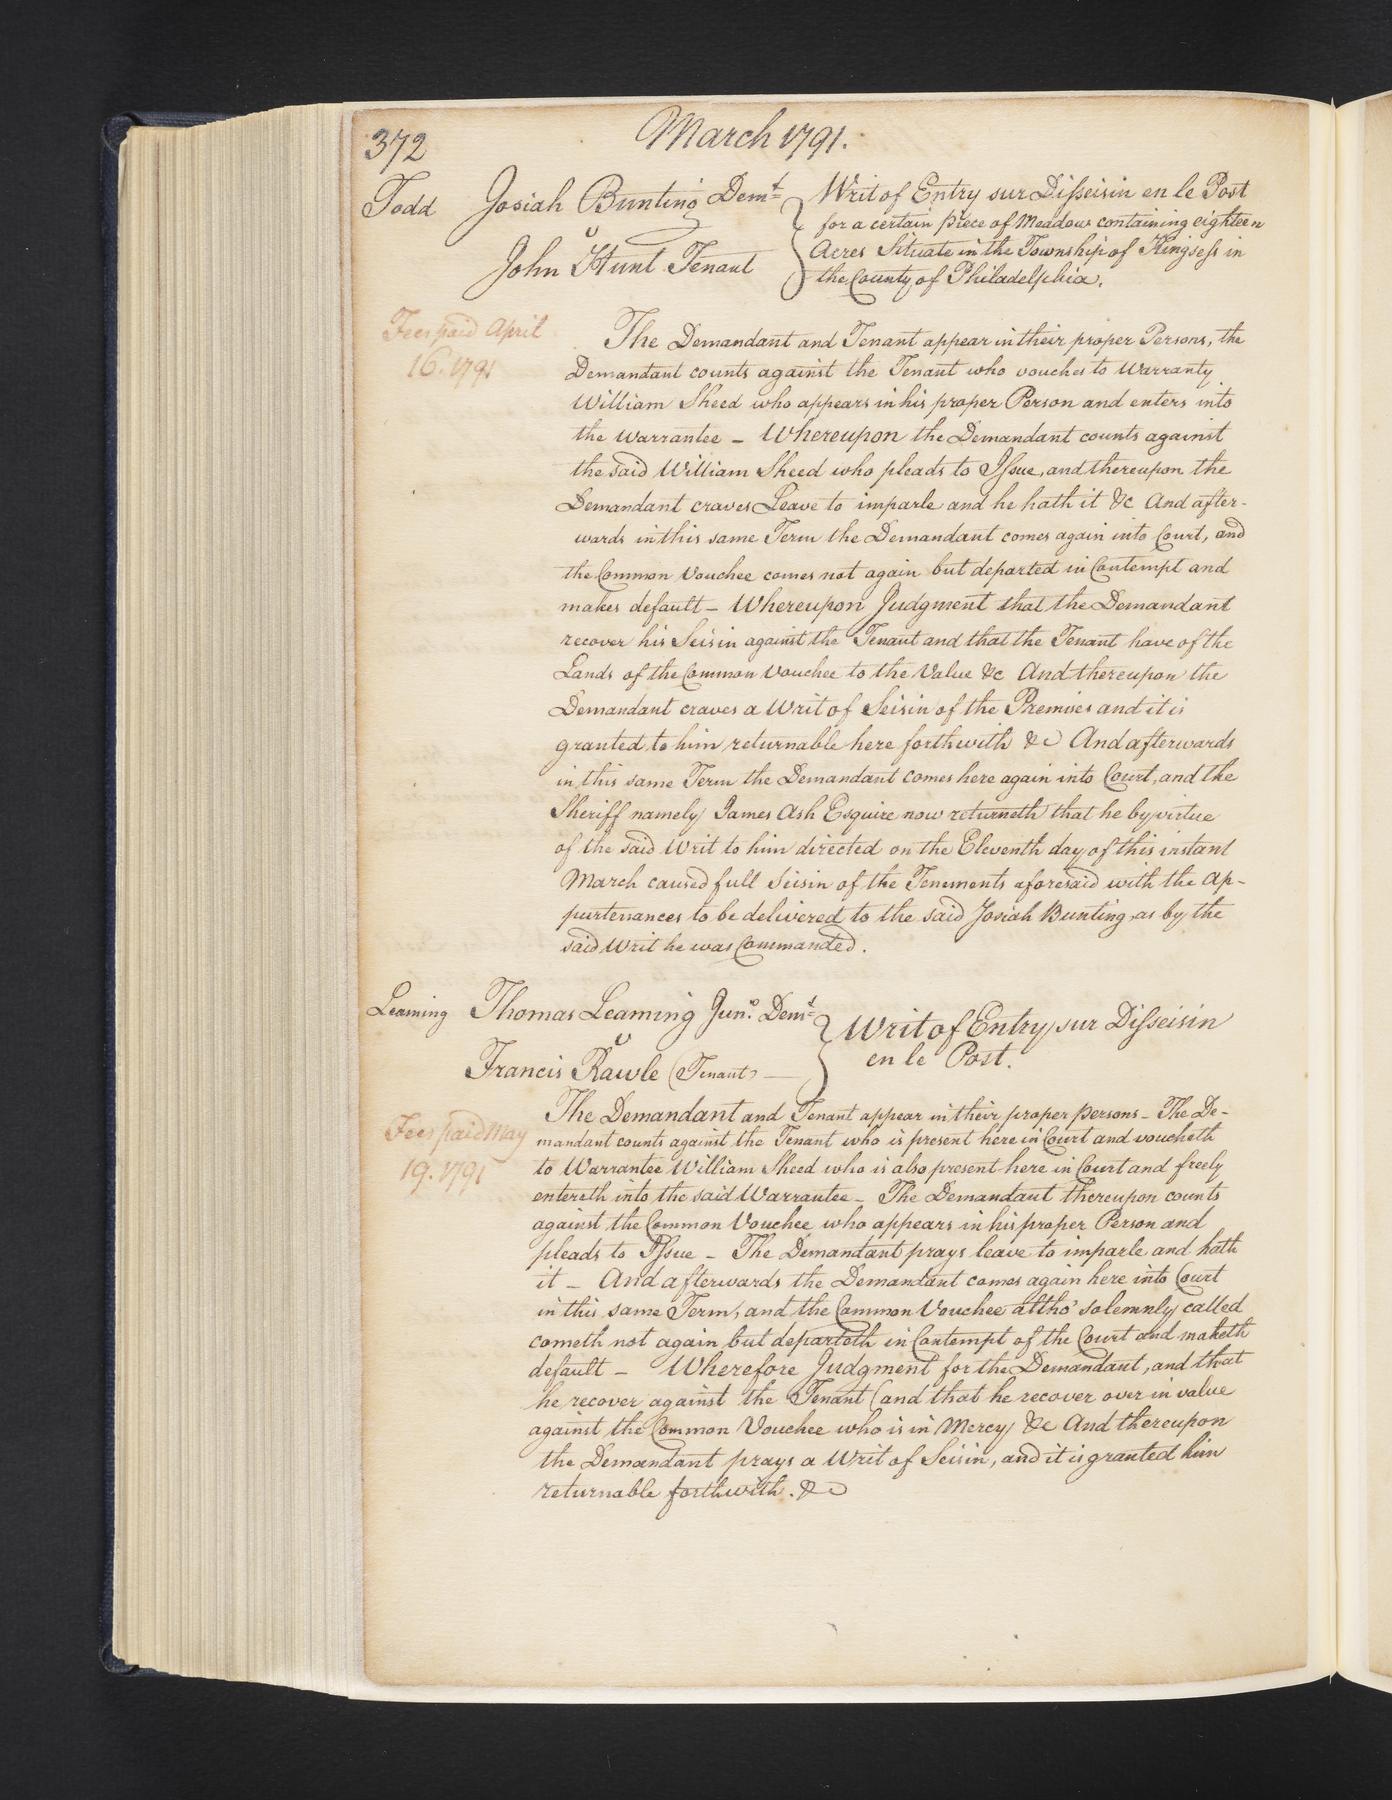 372
March 1791.
Todd Josiah Bunting Demt Writ of Entry sur Disseisin en le Post
for a certain piece of Meadow containing eighteen
v
Acres Situate in the Township of Kingsess in
John Hunt Tenant
the County of Philadelphia.
Fees paid April
16. 1791
The Demandant and Tenant appear in their proper Persons, the
Demandant counts against the Tenant who vouches to Warranty
William Sheed who appears in his proper Person and enters into
the Warrantee – Whereupon the Demandant counts against
the said William Sheed who pleads to Issue, and thereupon the
Demandant craves Leave to imparle and he hath it &c And after-
wards in this same Term the Demandant comes again into Court, and
the Common Vouchee comes not again but departed in Contempt and
makes default – Whereupon Judgment that the Demandant
recover his Seisin against the Tenant and that the Tenant have of the
Lands of the Common Vouchee to the Value &c And thereupon the
Demandant craves a Writ of Seisin of the Premises and it is
granted to him returnable here forthwith &c And afterwards
in this same Term the Demandant comes here again into Court, and the
Sheriff namely James Ash Esquire now returneth that he by virtue
of the said Writ to him directed on the Eleventh day of this instant
March caused full Seisin of the Tenements aforesaid with the Ap-
purtenances to be delivered to the said Josiah Bunting, as by the
said Writ he was Commanded.
Leaming Thomas Leaming Junr. Demt Writ of Entry sur Disseisin
v
en le Post.
Francis Rawle (Tenant)
Fees paid May
19. 1791
The Demandant and Tenant appear in their proper persons – The De-
mandant counts against the Tenant who is present here in Court and voucheth
to Warrantee William Sheed who is also present here in Court and freely
entereth into the said Warrantee – The Demandant thereupon counts
against the Common Vouchee who appears in his proper Person and
pleads to Issue – The Demandant prays leave to imparle and hath
it – And afterwards the Demandant comes again here into Court
in this same Term, and the Common Vouchee altho' solemnly called
cometh not again but departeth in Contempt of the Court and maketh
default – Wherefore Judgment for the Demandant, and that
he recover against the Tenant (and that he recover over in value
against the Common Vouchee who is in Mercy &c And thereupon
the Demandant prays a Writ of Seisin, and it is granted him
returnable forthwith. &c